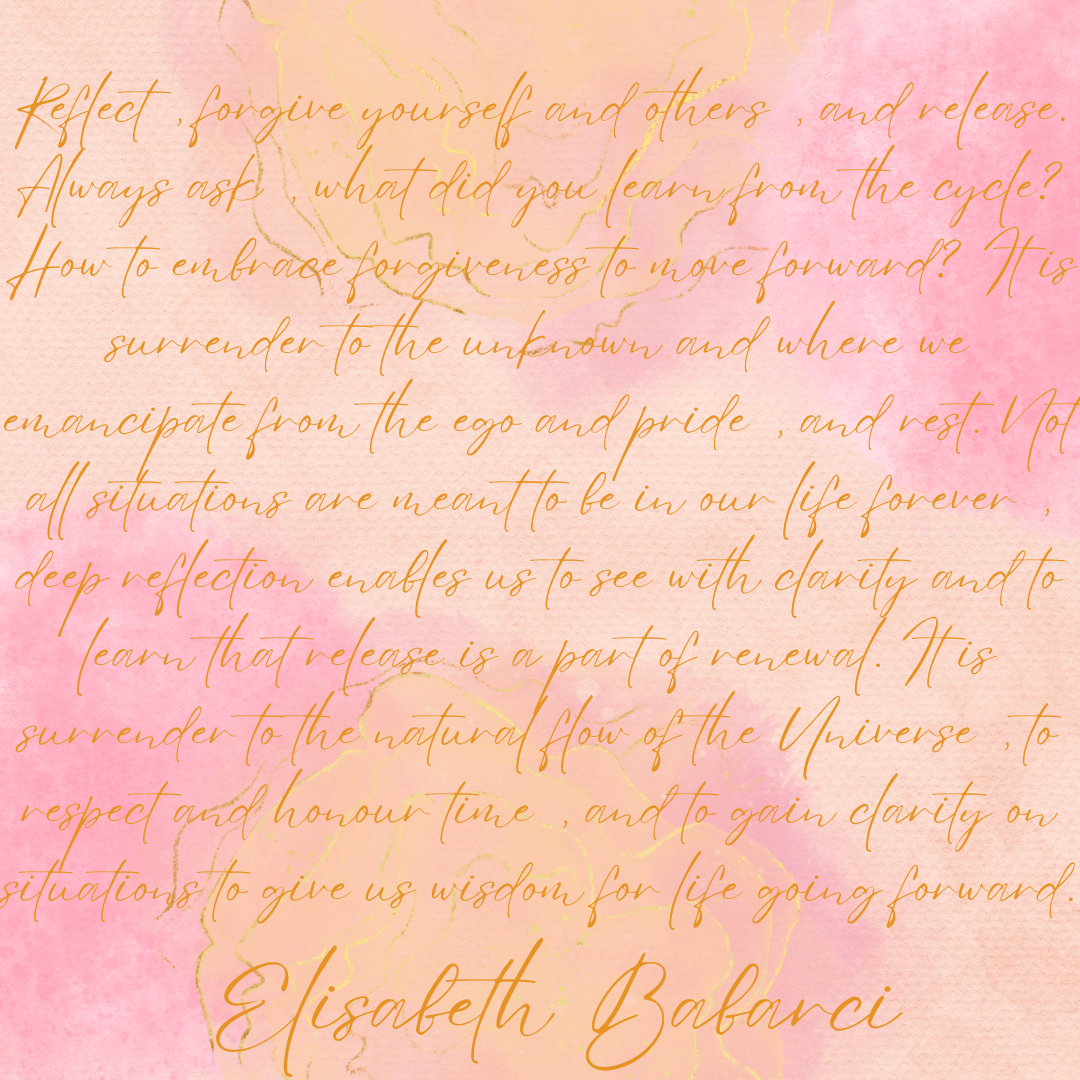 Reflect , forgive yourself and others , and release.
Always ask , what did you learn from the cycle?
How to embrace forgiveness to move forward? It is
surrender to the unknown and where we
emancipate from the ego and pride , and rest. Not
all situations are meant to be in our life forever ,
deep reflection enables us to see with clarity and to
learn that release is a part of renewal. It is
surrender to the natural flow of the Universe , to
respect and honour time , and to gain clarity on
situations to give us wisdom for life going forward.
Elisabeth Babarci